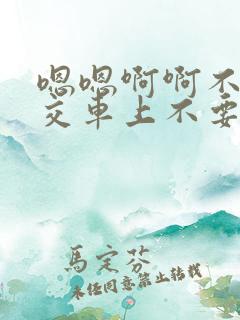 嗯嗯啊啊不
交車上不要
馬定芬
未經同意禁止轉載